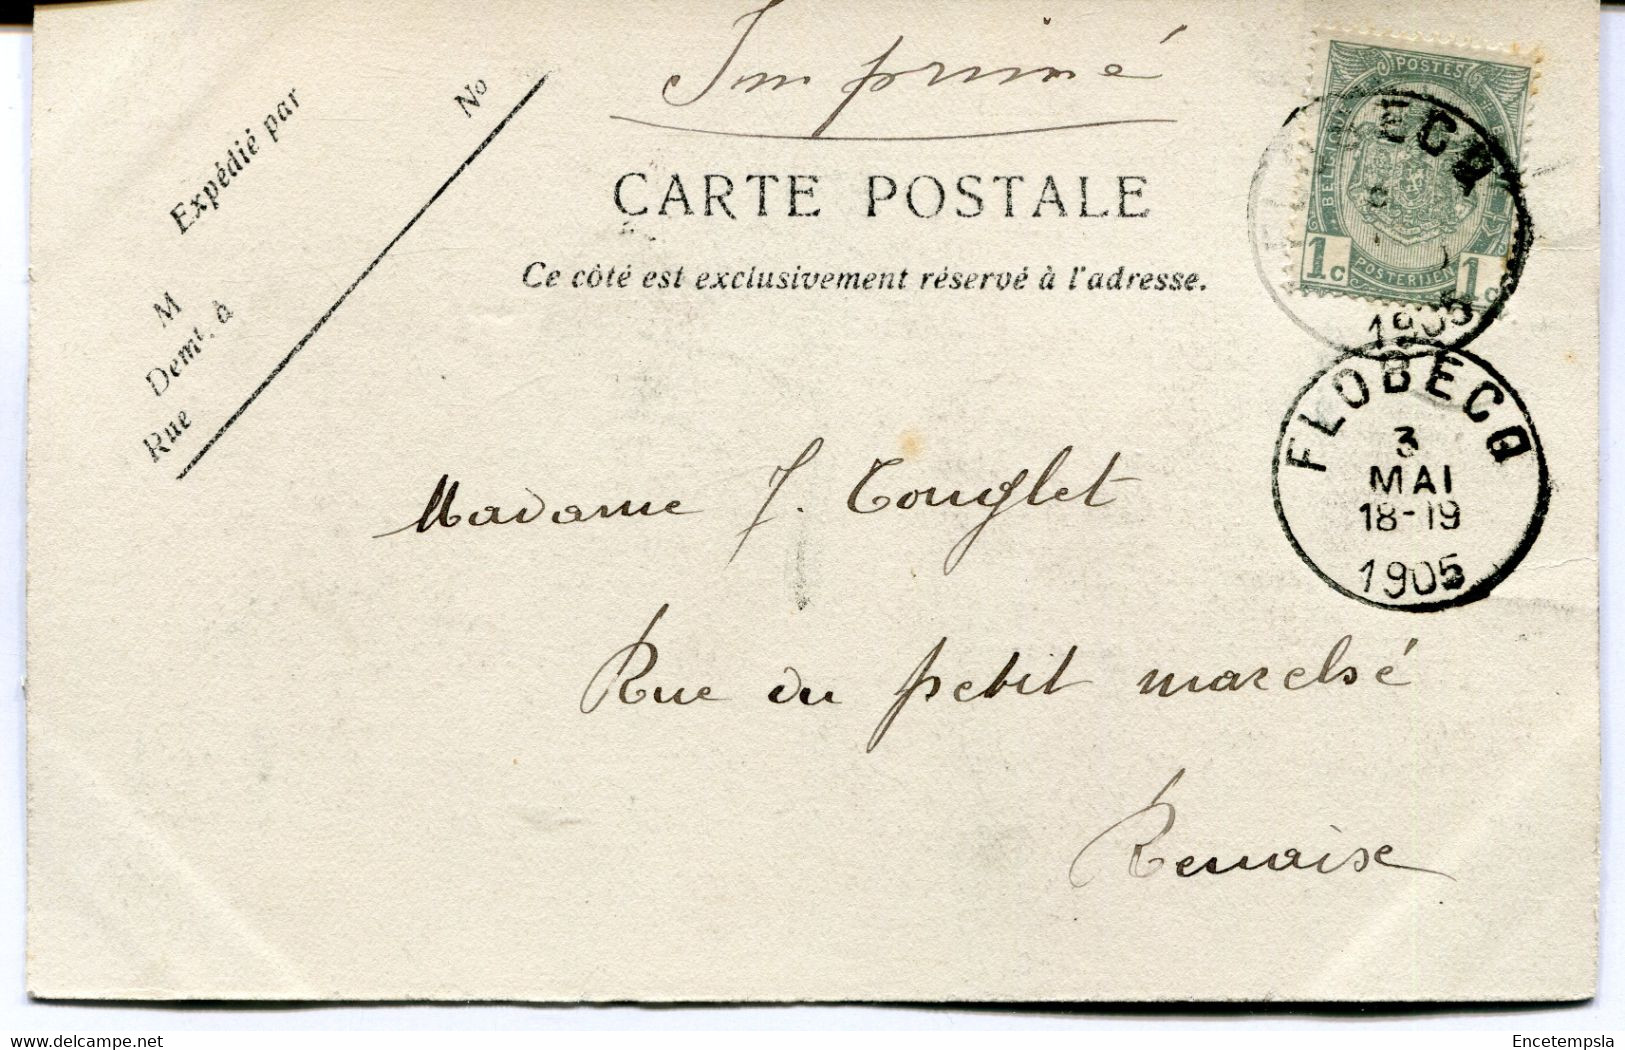 Imprimé
CARTE POSTALE
Ce côté est exclusivement réservé à l'adresse.
No
Expédié par
M
Demt. à
Rue
POSTES
BELGIQUE
POSTERIJEN
1c 1c
ECQ
1905
FLOBECQ
3
MAI
18-19
1905
Madame J. Couglet
Rue du petit marché
Renaise
Encetempsla